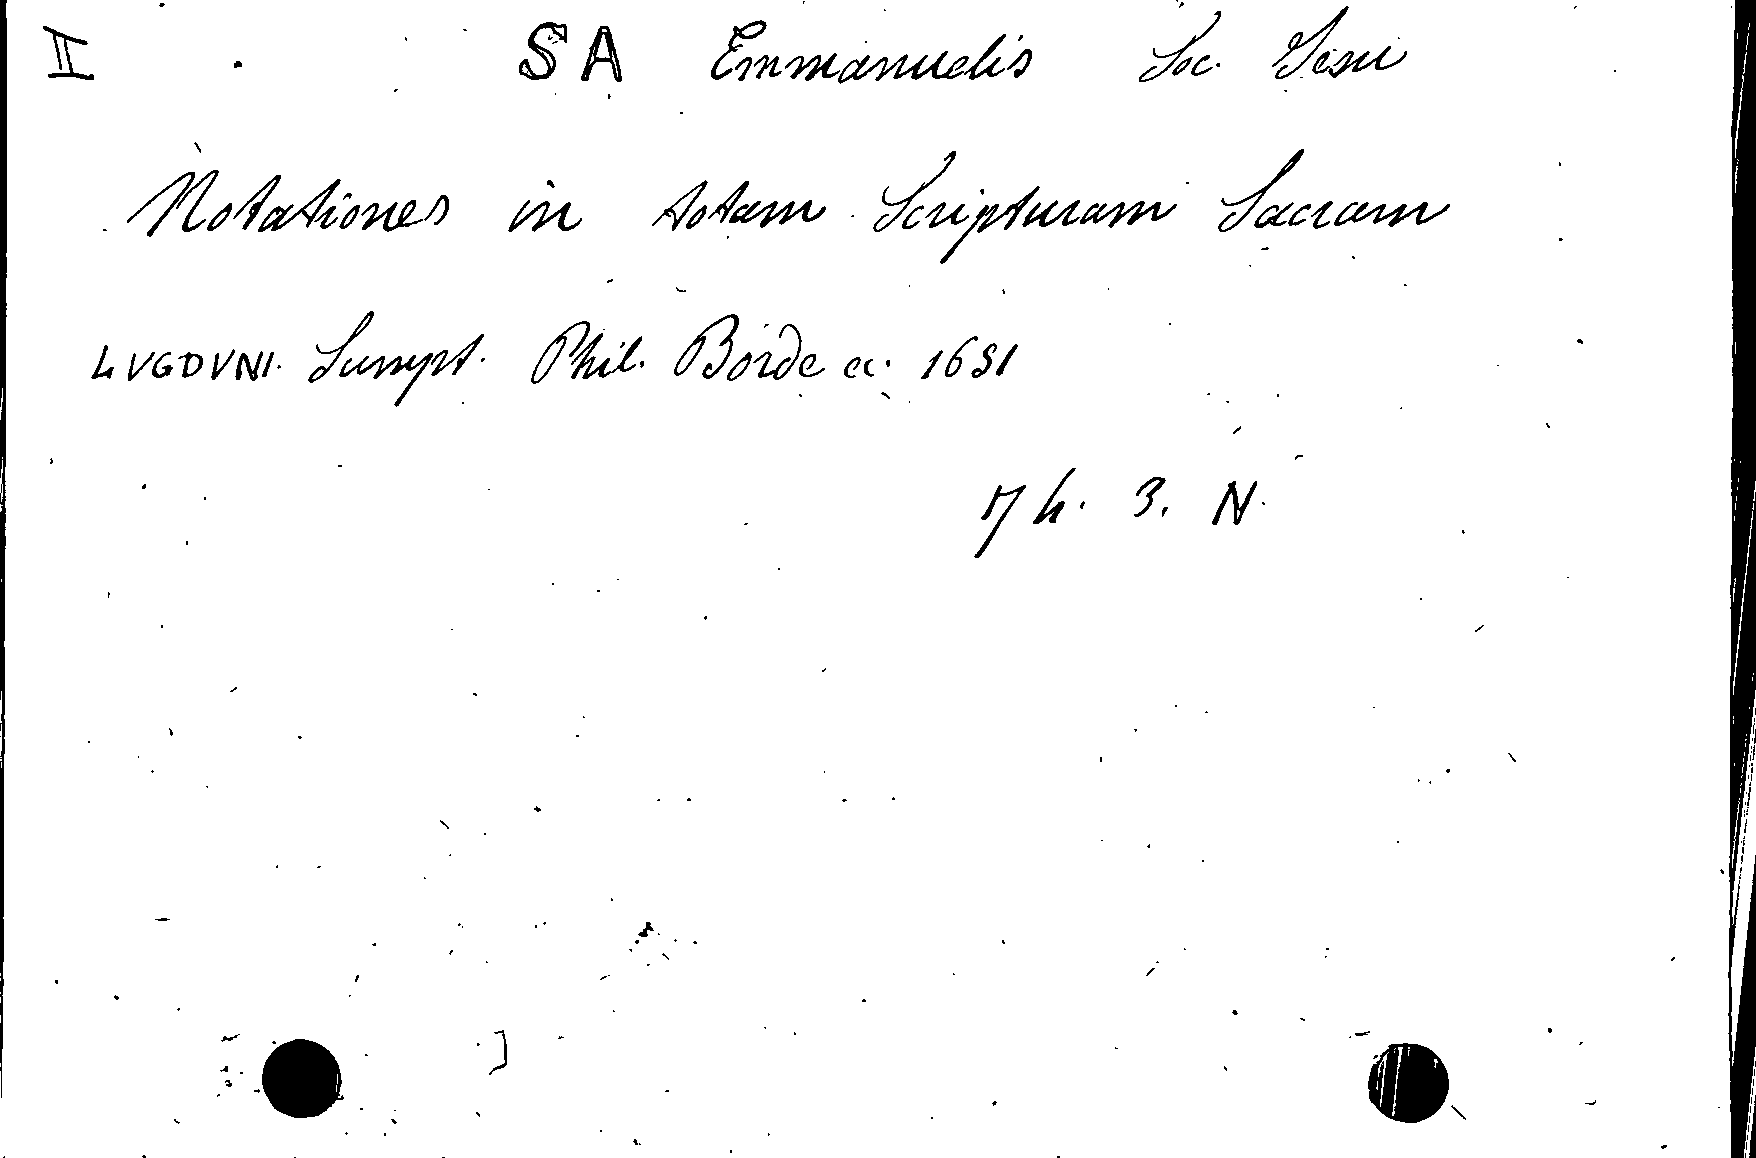 II SA Emmanuelis Soc. Jesu
Notationes in totam Scripturam Sacram
LVGDVNI. Sumpt. Phil. Borde a. 1651
17 h. 3. N.